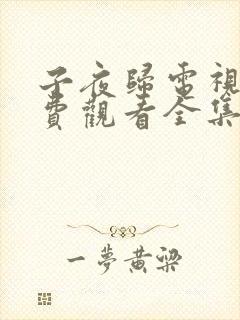 子夜歸電視
費觀看全集
一夢黃粱